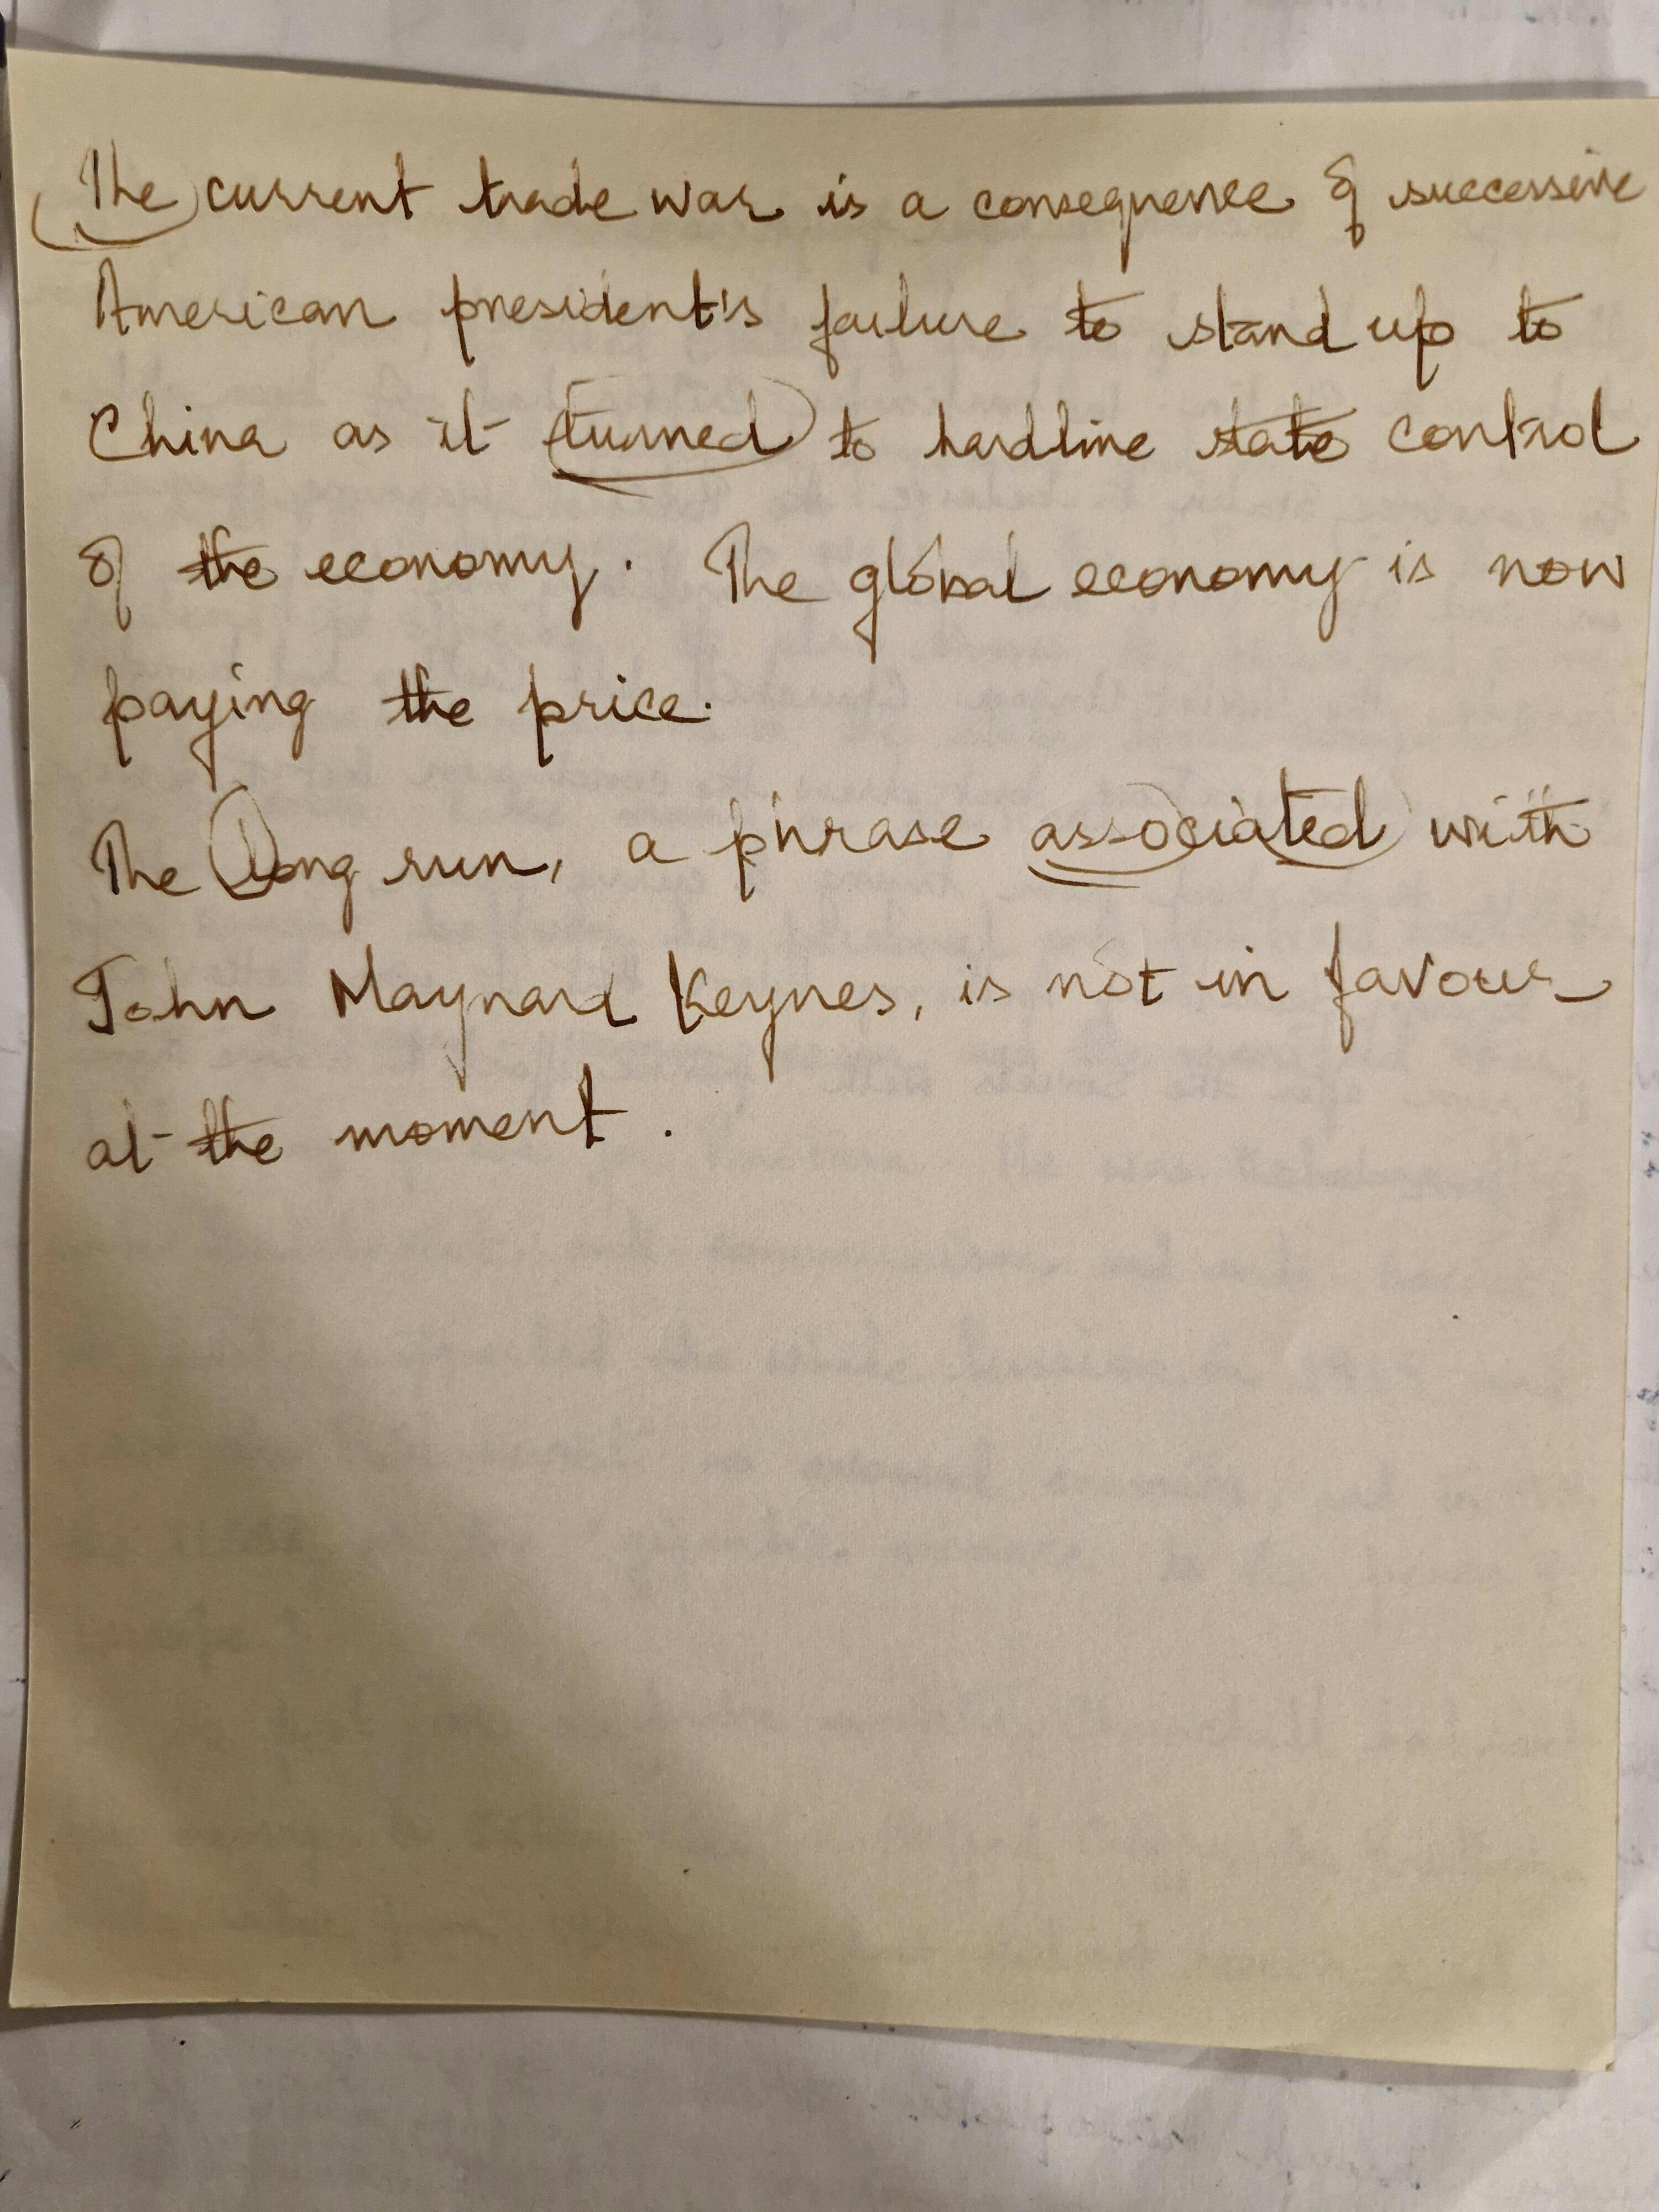 The current trade war is a consequence of successive
American president's failure to stand up to
China as it turned to hardline state control
of the economy. The global economy is now
paying the price.
The long run, a phrase associated with
John Maynard Keynes, is not in favour
at the moment.